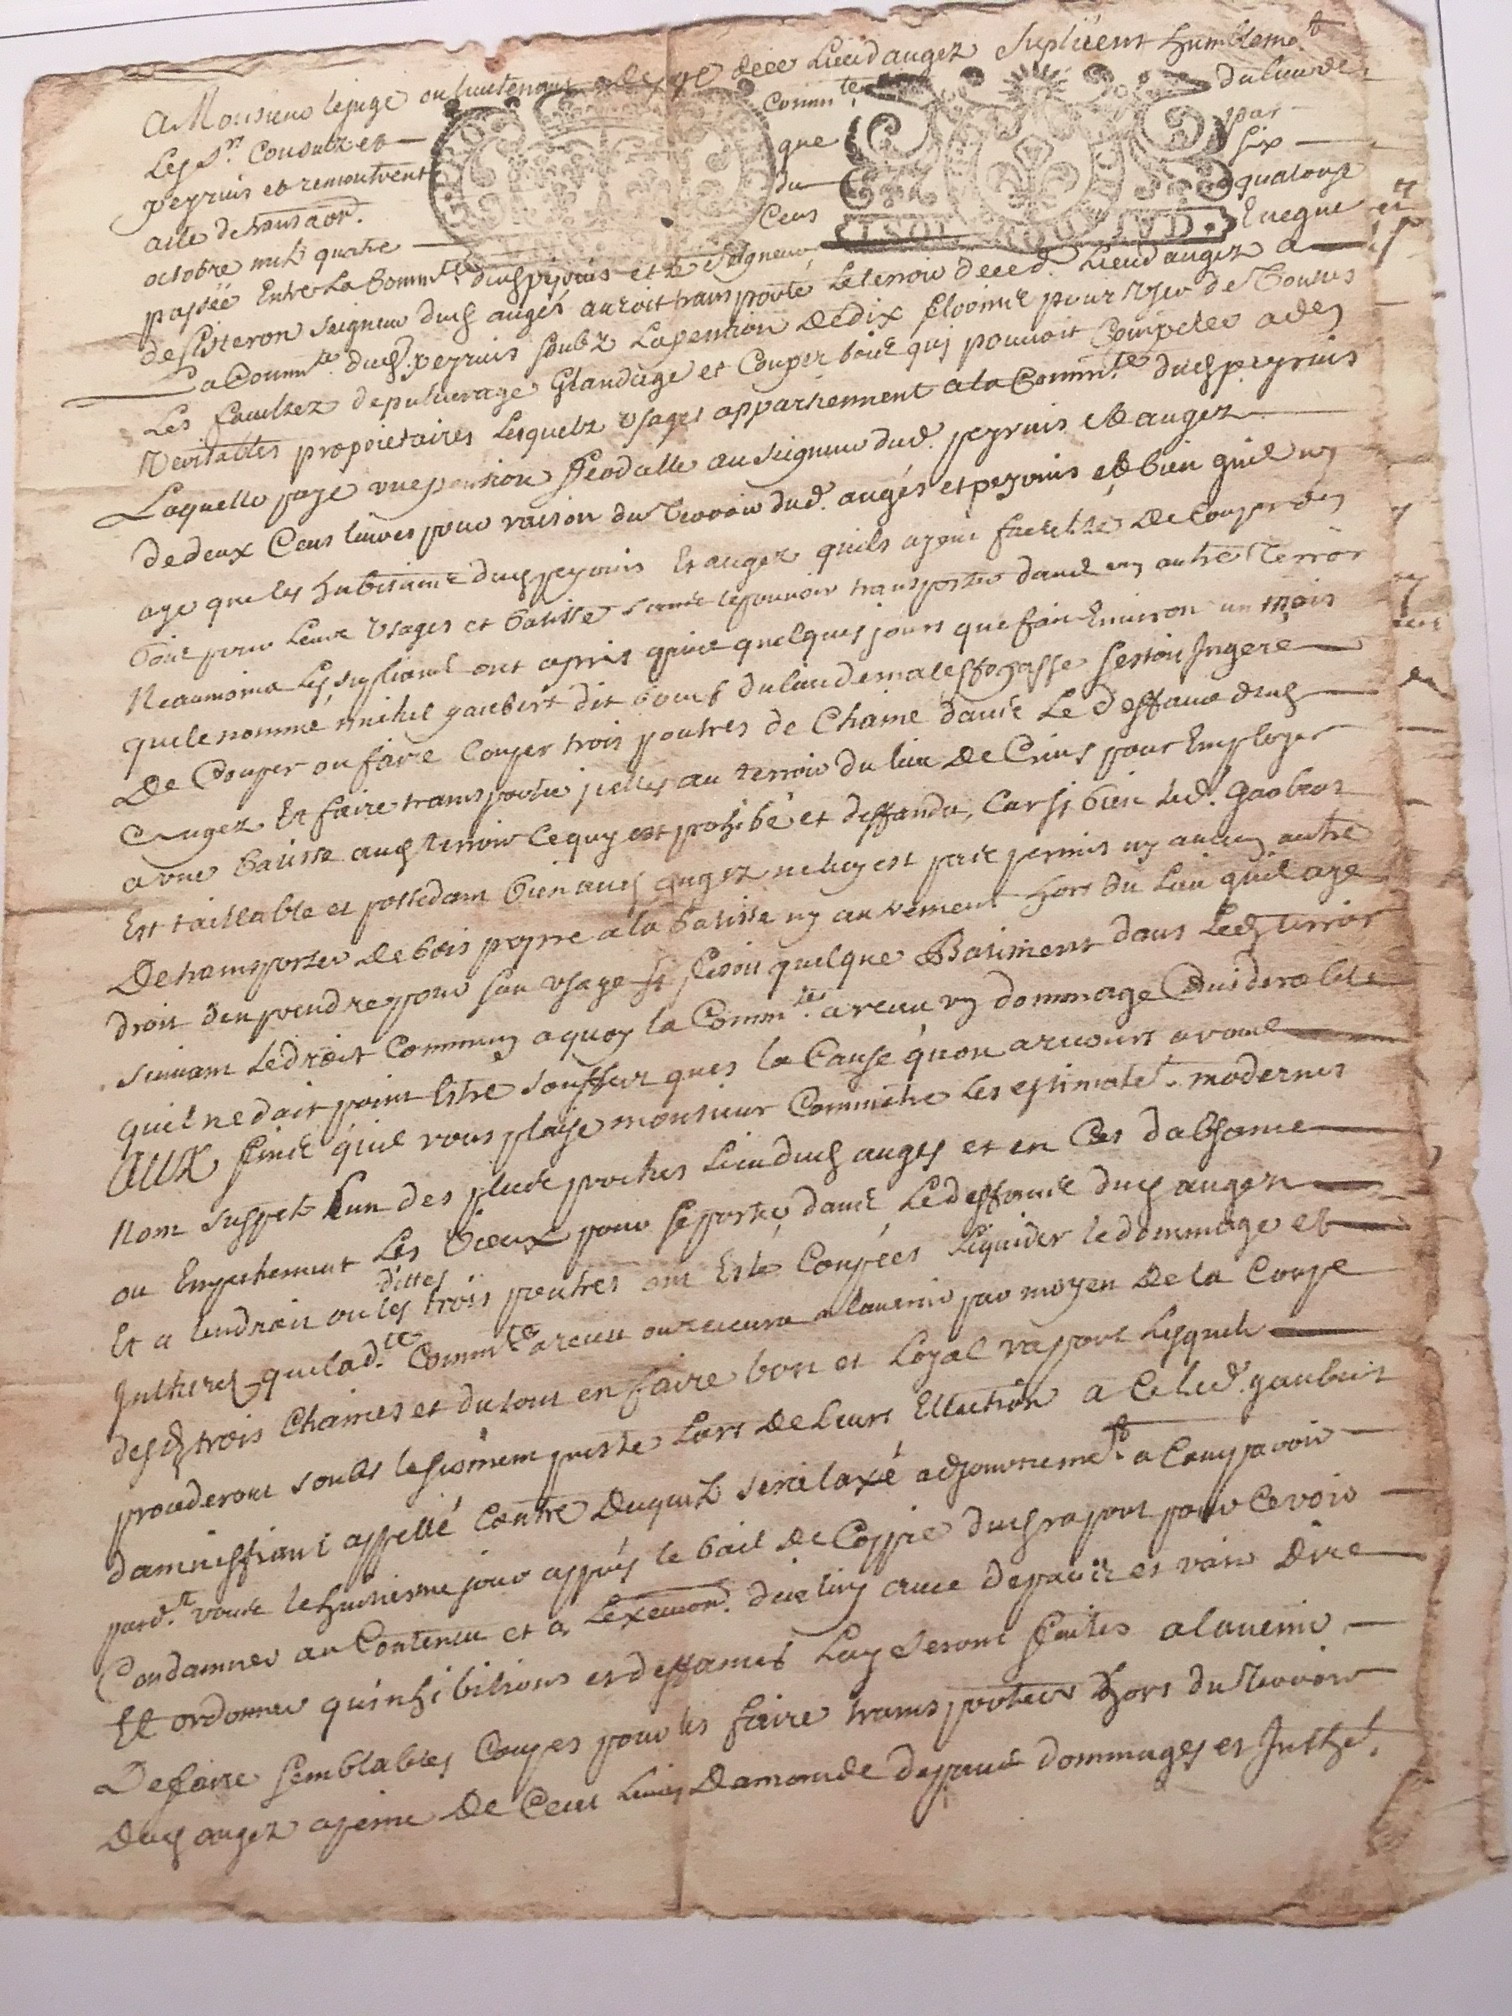 A Monsieur le juge ou lieutenant de ce Lieu d augez Suplient humblemt
Les srs Consulz et Commte du lieu de
peyruis et remontrent que par
acte de transaon. du six
octobre mil quatre Cens quatorze
passée Entre La Commte dud peyruis et le Seigneur Eveque
de Sisteron Seigneur dud augés auroit transporté Le terroir de ced. Lieu d augez a
La Commte. dud. peyruis soubz La pention de dix florims pour User de Toutes
Les facultez depasturage Glandage et Couper bois qui pouvoit Competer a des
Veritables propietaires Lesquelz Usages appartiennent a la Commte. dud peyruis
Laquelle paye une pention feodalle au Seigneur dud. peyruis Et augez
de deux Cens livres pour raison du Terroir dud. augés et peyruis et bien quil ny
aye que les habitans dud peyruis Et augez quils ayent faculté de Couper du
bois pour Leurs Usages et batisse sans le pouvoir transporter dans un autre Terroir
Neaumoins Les suplians ont apris quil quelques jours que fait Environ un mois
que le nommé michel gaubert dit du lieu de malesfogasse sestoit Ingeré
De Couper ou faire Couper trois poutres de Chaine dans Le deffans dud
augez Et faire transporter icelles au terroir du lieu De Crius pour Employer
a une batisse aud terroir Ce quy est prohibé et deffandu, Car si bien led. Gaubert
Est taillable et possedant bien aud augez ne luy est pas permis ny aucun autre
De transporter de bois peyrre a la batisse ny autrement hors du Lieu quil aye
droit den prendre pour son usage si fesoit quelque Batiment dans Led terroir
suivant Le droit Commun a quoy la Commte. a receu un dommage Considerable
quil ne doit point Estre souffert ques la Cause quon a recours a vous
AUX fins quil vous plaise monsieur Commetre Les estimatrs. modernes
Nom suspets Lun des plus proches Lieu dud augés et en Cas dabsance
ou Empechement Les Vieux pour se porter dans Le deffans dud augez
Et a Lendroit ou les dittes trois poutres ont Esté Coupées Liquider le dommage et
Intherés que lad.te Commte a receu ou recevra a lavenir par moyen De la Coupe
desd. trois Chaines et du tout en faire bon et Loyal raport Lesquels
procederont soubs le serment presté Lors de leurs Ellection a Ce led. gaubert
damnissiant appellé Contre Duquel sera laxé adjournemt. a Comparoir
pard.t vous le huitiesme jour appres le bail de Coppie dud raport pour ce voir
Condamner au Contenu et a Lexemon. dicelluy avec depans et voir Dire
Et ordonner quinhibitions et deffances Luy seront faites a lavenir
De faire semblables Coupes pour les faire transporter hors du Terroir
Dud augez a peine De Cent Livres Damande depans dommages et Inthé.